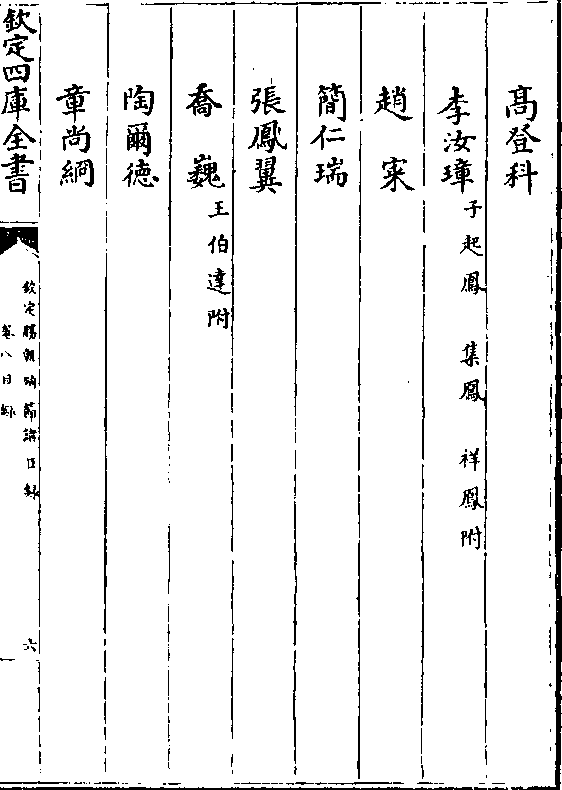 高登科
李汝璋子起鳳 集鳳 祥鳳附
趙寀
簡仁瑞
張鳳翼
喬巍王伯達附
陶爾德
章尚絅
欽定四庫全書
欽定勝朝殉節諸臣錄
卷八目錄
六